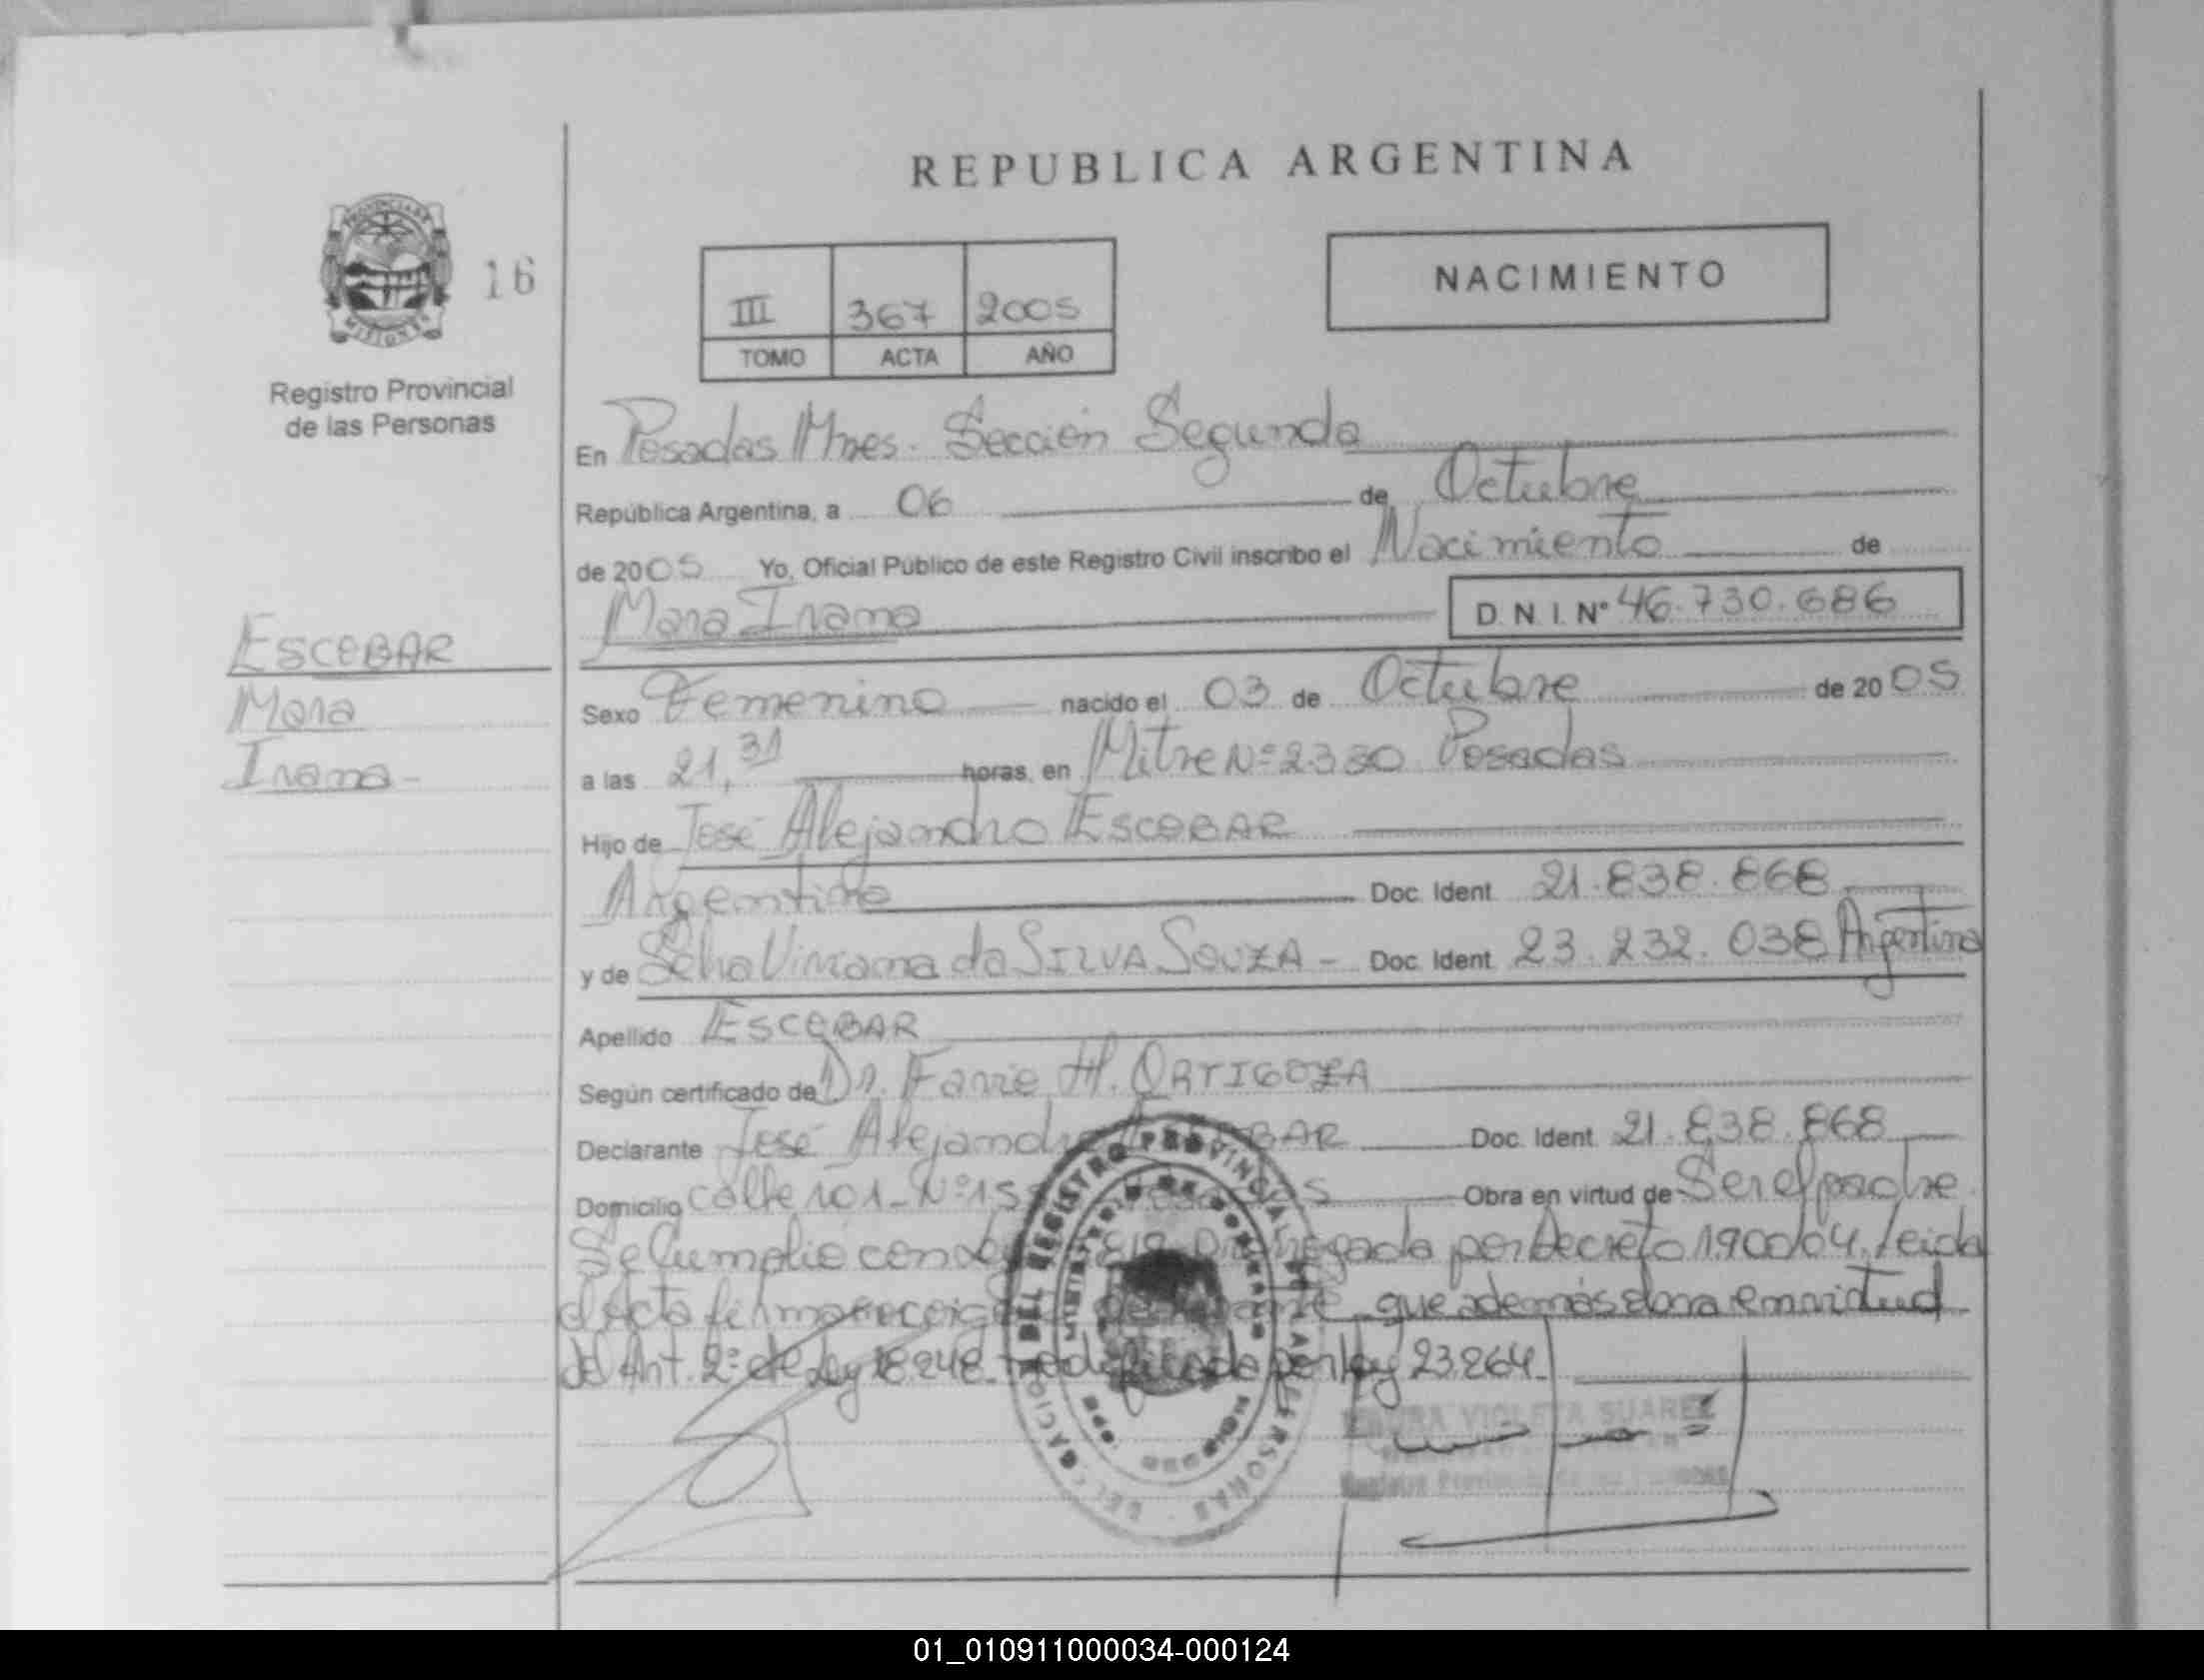 REPUBLICA ARGENTINA
PROVINCIA DE
MISIONES
16
Registro Provincial
de las Personas
NACIMIENTO
III 367 2005
TOMO ACTA AÑO
En Posadas Mnes. Sección Segunda
República Argentina, a 06 de Octubre
de 2005 Yo, Oficial Público de este Registro Civil inscribo el Nacimiento de
Mara Irama D.N.I. Nº 46.730.686
ESCOBAR
Mara
Irama-
Sexo Femenino nacido el 03 de Octubre de 2005
a las 21,31 horas, en Mitre Nº 2330 Posadas
Hijo de José Alejandro ESCOBAR
Argentino Doc. Ident. 21.838.868
y de da SILVA SOUZA - Doc. Ident. 23.232.038 Argentina
Apellido ESCOBAR
Según certificado de Dr. H. ORTIGOZA
Declarante José Alejandro Doc. Ident. 21.838.868
Domicilio calle 101 - Nº Obra en virtud de Ser el padre
Se Cumplio con por Decreto 1900/04. leida
el Acta que además obra en virtud
del Art. 2º de Ley 18.248 - modificada por Ley 23.264.
VIOLETA SUAREZ
DEL REGISTRO PROVINCIAL DE LAS PERSONAS
01_010911000034-000124